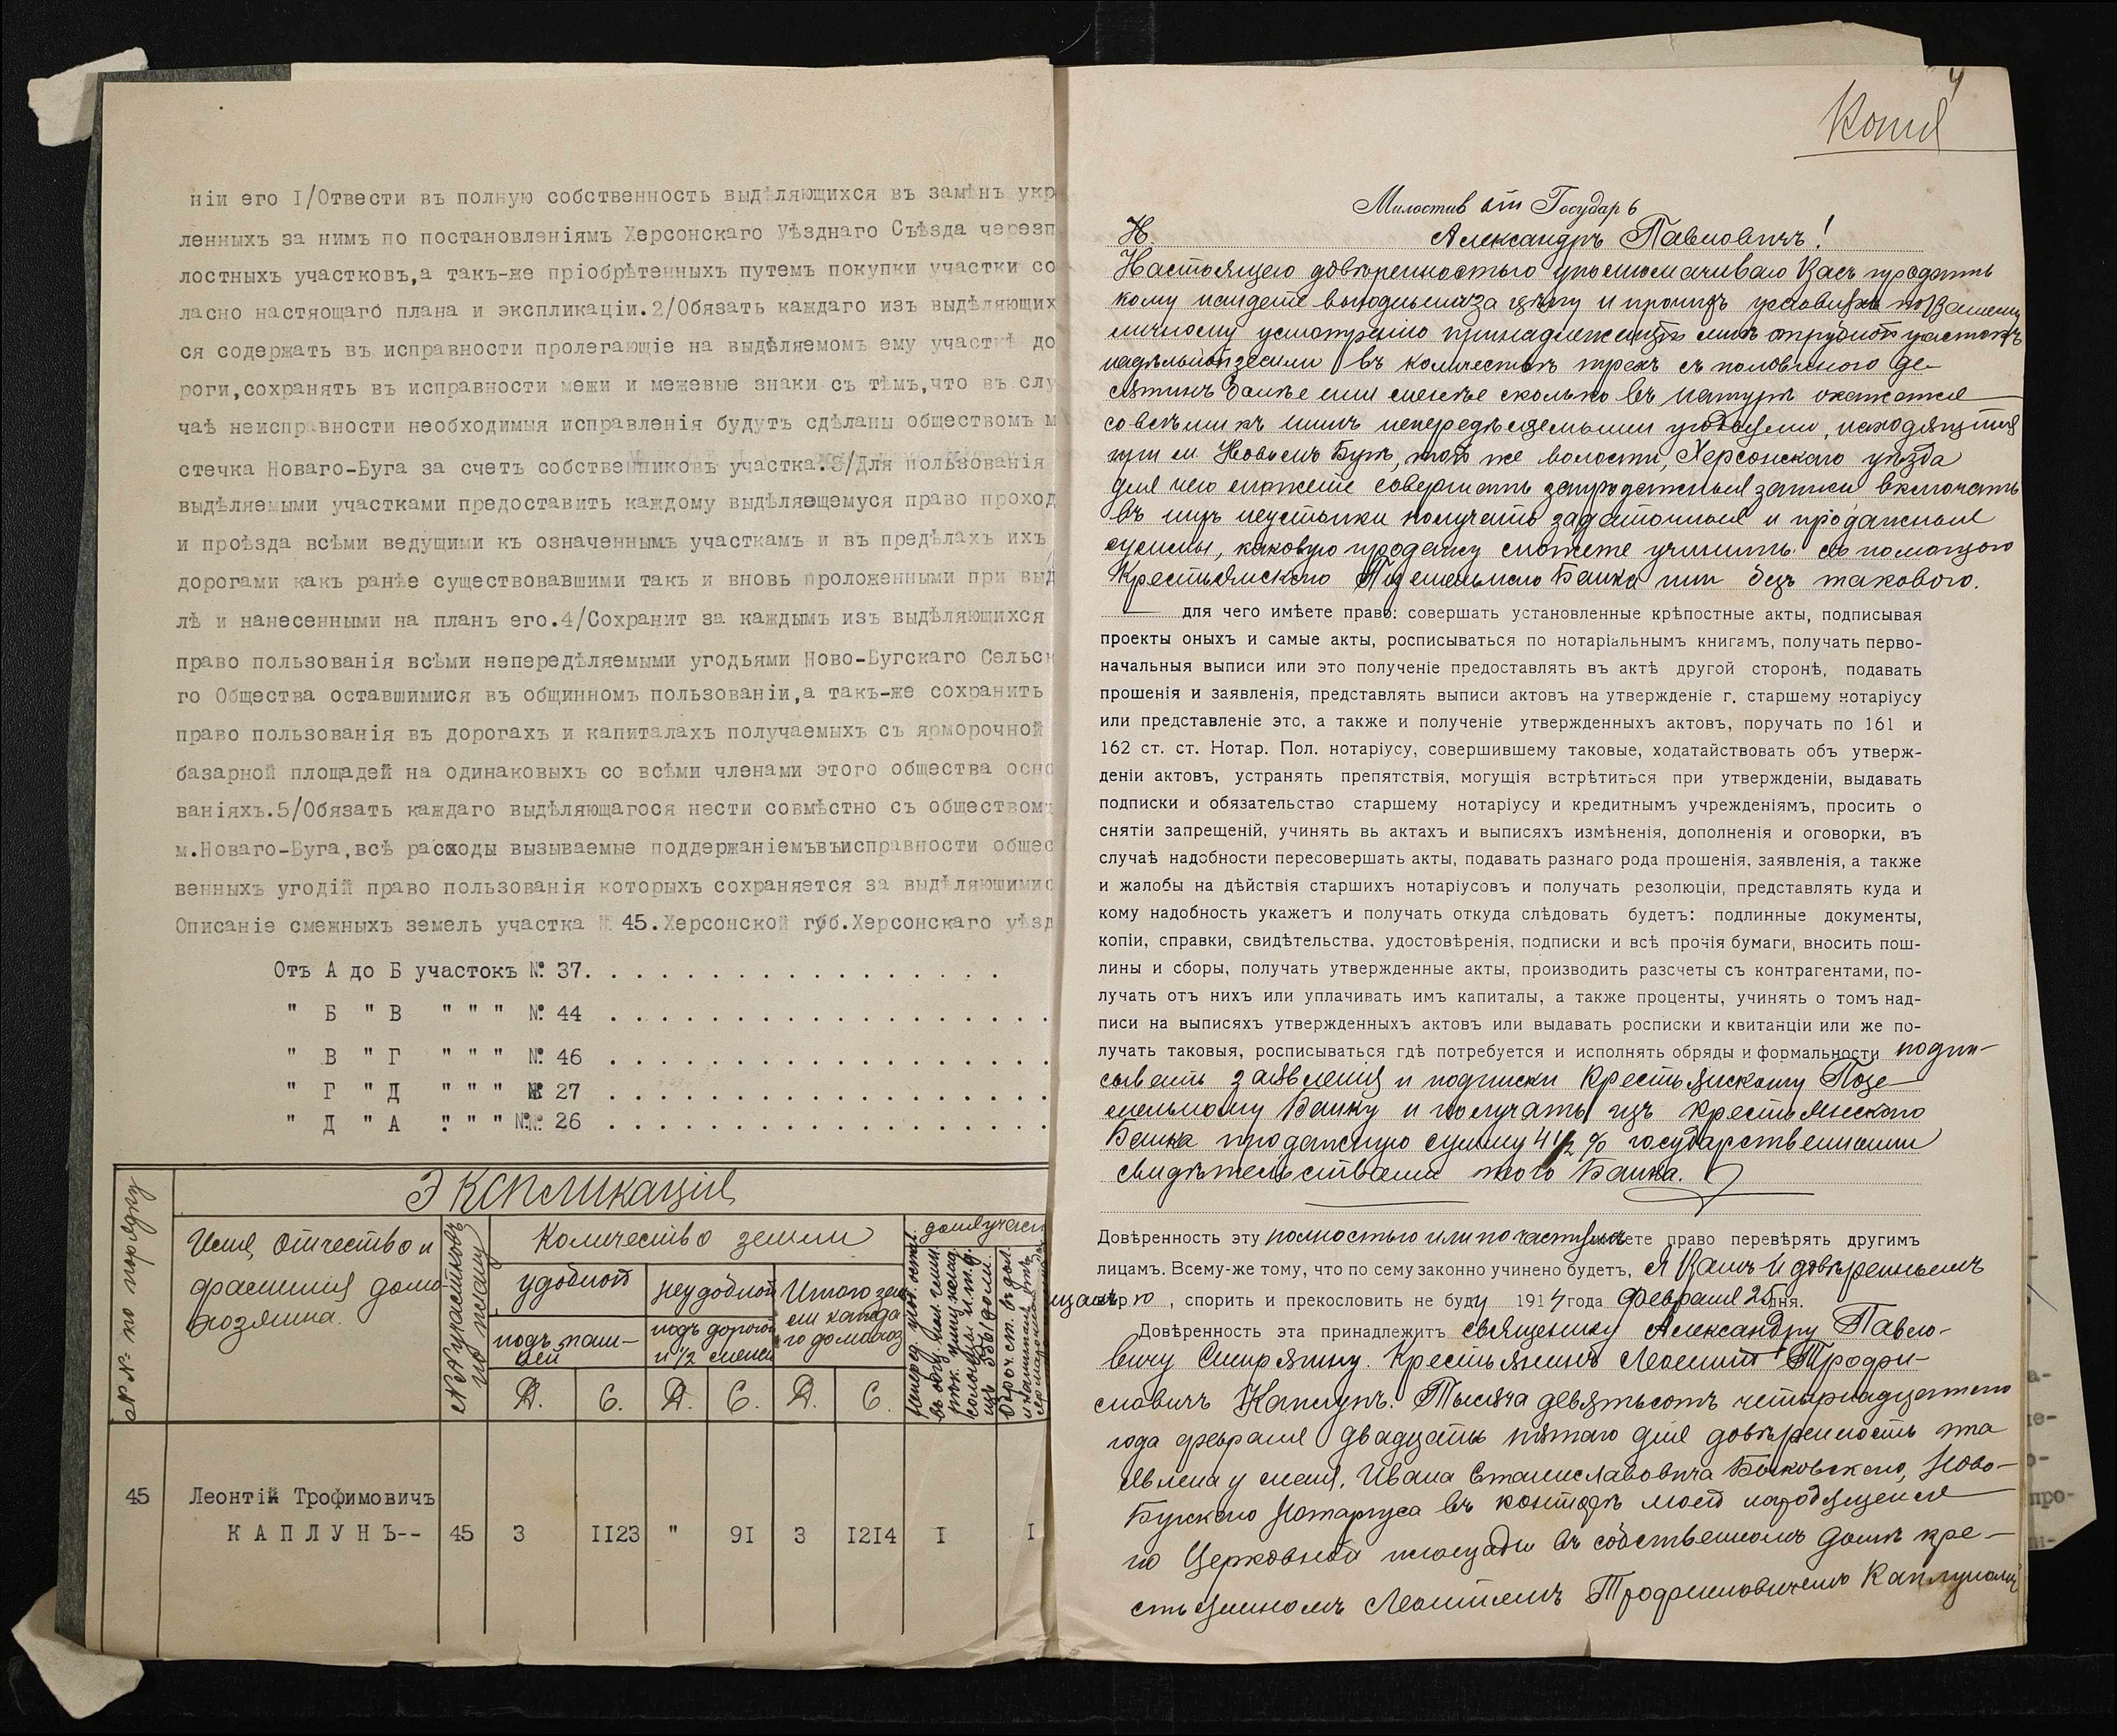 ніи его I/Отвести въ полную собственность выдѣляющихся въ замѣнъ укр
ленныхъ за нимъ по постановленіямъ Херсонскаго Уѣзднаго Съѣзда черезп
лостныхъ участковъ,а такъ-же пріобрѣтенныхъ путемъ покупки участки со
ласно настяощаго плана и экспликаціи.2/Обязать каждаго изъ выдѣляющих
ся содержать въ исправности пролегающіе на выдѣляемомъ ему участкѣ до
роги,сохранять въ исправности межи и межевые знаки съ тѣмъ,что въ слу
чаѣ неисправности необходимыя исправленія будутъ сдѣланы обществомъ м
стечка Новаго-Буга за счетъ собственниковъ участка.3/Для пользованія
выдѣляемыми участками предоставить каждому выдѣляещемуся право проход
и проѣзда всѣми ведущими къ означеннымъ участкамъ и въ предѣлахъ ихъ
дорогами какъ ранѣе существовавшими такъ и вновь проложенными при выд
лѣ и нанесенными на планъ его.4/Сохранит за каждымъ изъ выдѣляющихся
право пользованія всѣми непередѣляемыми угодьями Ново-Бугскаго Сельск
го Общества оставшимися въ общинномъ пользованіи,а такъ-же сохранить
право пользованія въ дорогахъ и капиталахъ получаемыхъ съ ярморочной
базарной площадей на одинаковыхъ со всѣми членами этого общества осно
ваніяхъ.5/Обязать каждаго выдѣляющагося нести совмѣстно съ обществомъ
м.Новаго-Буга,всѣ расходы вызываемые поддержаніемъвъисправности общес
венныхъ угодій право пользованія которыхъ сохраняется за выдѣляющимис
Описаніе смежныхъ земель участка № 45.Херсонской губ.Херсонскаго уѣзд
Отъ А до Б участокъ № 37. . . . . . . . . . . . . . . . . .
" Б " В " " " № 44 . . . . . . . . . . . . . . . . . .
" В " Г " " " № 46 . . . . . . . . . . . . . . . . . .
" Г " Д " " " № 27 . . . . . . . . . . . . . . . . . .
" Д " А " " " № 26 . . . . . . . . . . . . . . . . . .
Экспликація
№№ по порядку
Имя, отчество и
фамилія домо-
хозяина.
№№ участковъ
по плану
Количество земли
удобной
неудобной
Итого зем
ли кажда
го домохоз
подъ паш-
ней
подъ дорогой
и ½ межи
Д. С. Д. С. Д. С.
45 Леонтій Трофимовичъ
КАПЛУНЪ-- 45 3 II23 " 9I 3 I2I4 I I
Копія
Милостивый Государь
Н. Александръ Павловичъ!
Настоящею довѣренностью уполномачиваю Васъ продать
кому найдете выгоднымъ за цѣну и прочихъ условіяхъ по Вашему
личному усмотрѣнію принадлежащій мнѣ отрубной участокъ
надѣльной земли въ количествѣ трехъ съ половиною де-
сятинъ болѣе или менѣе сколько въ натурѣ окажется
со всѣми къ нимъ непередѣляемыми угодьями, находящійся
при м. Новомъ Бугѣ, той же волости, Херсонскаго уѣзда
для чего можете совершать запродажныя записи включать
въ нихъ неустойки получать задаточныя и продажныя
суммы, каковую продажу можете учинить съ помощью
Крестьянскаго Поземельнаго Банка или безъ таковаго.
для чего имѣете право: совершать установленные крѣпостные акты, подписывая
проекты оныхъ и самые акты, росписываться по нотаріальнымъ книгамъ, получать перво-
начальныя выписи или это полученіе предоставлять въ актѣ другой сторонѣ, подавать
прошенія и заявленія, представлять выписи актовъ на утвержденіе г. старшему нотаріусу
или представленіе это, а также и полученіе утвержденныхъ актовъ, поручать по 161 и
162 ст. ст. Нотар. Пол. нотаріусу, совершившему таковые, ходатайствовать объ утверж-
деніи актовъ, устранять препятствія, могущія встрѣтиться при утвержденіи, выдавать
подписки и обязательство старшему нотаріусу и кредитнымъ учрежденіямъ, просить о
снятіи запрещеній, учинять вь актахъ и выписяхъ измѣненія, дополненія и оговорки, въ
случаѣ надобности пересовершать акты, подавать разнаго рода прошенія, заявленія, а также
и жалобы на дѣйствія старшихъ нотаріусовъ и получать резолюціи, представлять куда и
кому надобность укажетъ и получать откуда слѣдовать будетъ: подлинные документы,
копіи, справки, свидѣтельства, удостовѣренія, подписки и всѣ прочія бумаги, вносить пош-
лины и сборы, получать утвержденные акты, производить разсчеты съ контрагентами, по-
лучать отъ нихъ или уплачивать имъ капиталы, а также проценты, учинять о томъ над-
писи на выписяхъ утвержденныхъ актовъ или выдавать росписки и квитанціи или же по-
лучать таковыя, росписываться гдѣ потребуется и исполнять обряды и формальности подпи-
сывать заявленія и подписки Крестьянскому Позе
мельному Банку и получать изъ Крестьянскаго
Банка продажную сумму 4½ % государственными
свидѣтельствами того Банка.
Довѣренность эту полностью или по частямъ имѣете право перевѣрять другимъ
лицамъ. Всему-же тому, что по сему законно учинено будетъ, я Вамъ и довѣреннымъ
Вашимъ вѣрю, спорить и прекословить не буду 1914 года Февраля 25 дня.
Довѣренность эта принадлежитъ священнику Александру Павло-
вичу Смирягину. Крестьянинъ Леонтій Трофи-
мовичъ Каплунъ. Тысяча девятьсотъ четырнадцатаго
года февраля двадцать пятаго дня довѣренность эта
явлена у меня, Ивана Станиславовича Быковскаго, Ново-
Бугскаго Нотаріуса въ конторѣ моей находящейся
по Церковной площади въ собственномъ домѣ кре-
стьяниномъ Леонтіемъ Трофимовичемъ Каплуномъ